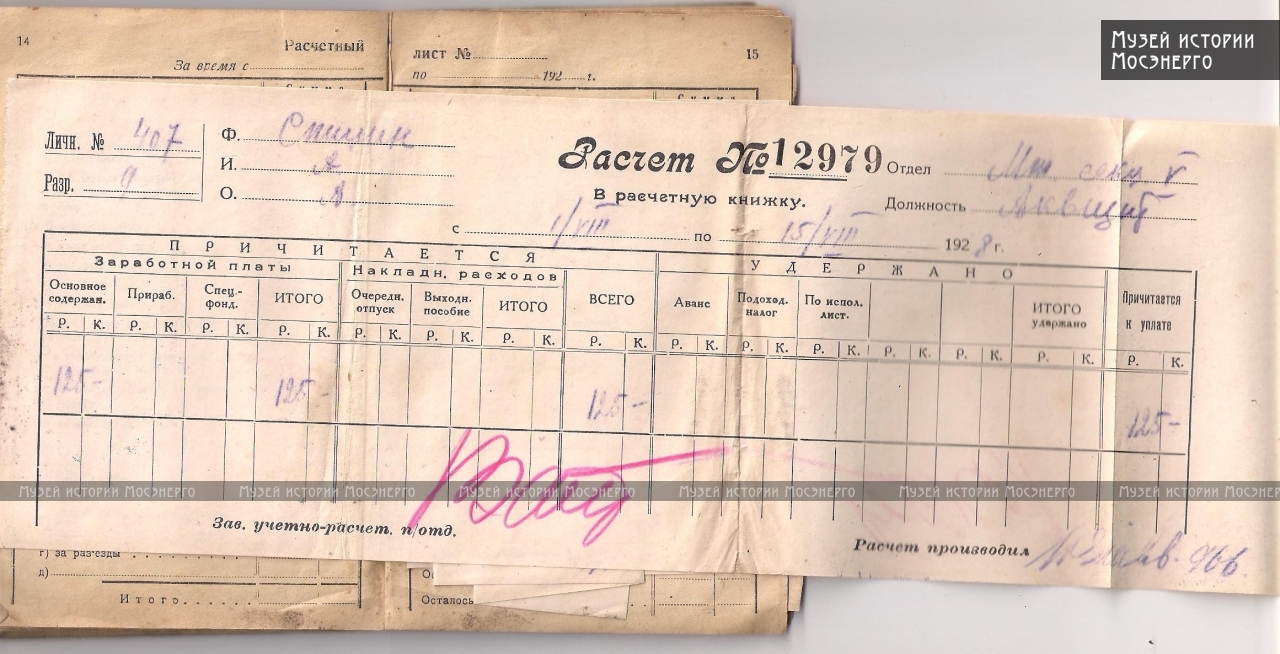 Музей истории
Мосэнерго
14 Расчетный лист № 15
За время с по 192 г.
Личн. № 407
Разр. 9
Ф.
И. А
О. А
Расчет № 12979
В расчетную книжку.
Отдел
Должность
с 1/VIII по 15/VIII 1928 г.
ПРИЧИТАЕТСЯ УДЕРЖАНО
Заработной платы Накладн. расходов ВСЕГО Причитается к уплате
Основное содержан. Прираб. Спец.-фонд. ИТОГО Очередн. отпуск Выходн. пособие ИТОГО Аванс Подоход. налог По испол. лист. ИТОГО удержано
Р. К. Р. К. Р. К. Р. К. Р. К. Р. К. Р. К. Р. К. Р. К. Р. К. Р. К. Р. К. Р. К. Р. К. Р. К.
125- 125- 125- 125-
Музей истории Мосэнерго Музей истории Мосэнерго Музей истории Мосэнерго Музей истории Мосэнерго Музей истории Мосэнерго Музей истории Мосэнерго
Зав. учетно-расчет. п/отд.
Расчет производил
г) за разъезды
д)
Итого
Осталось